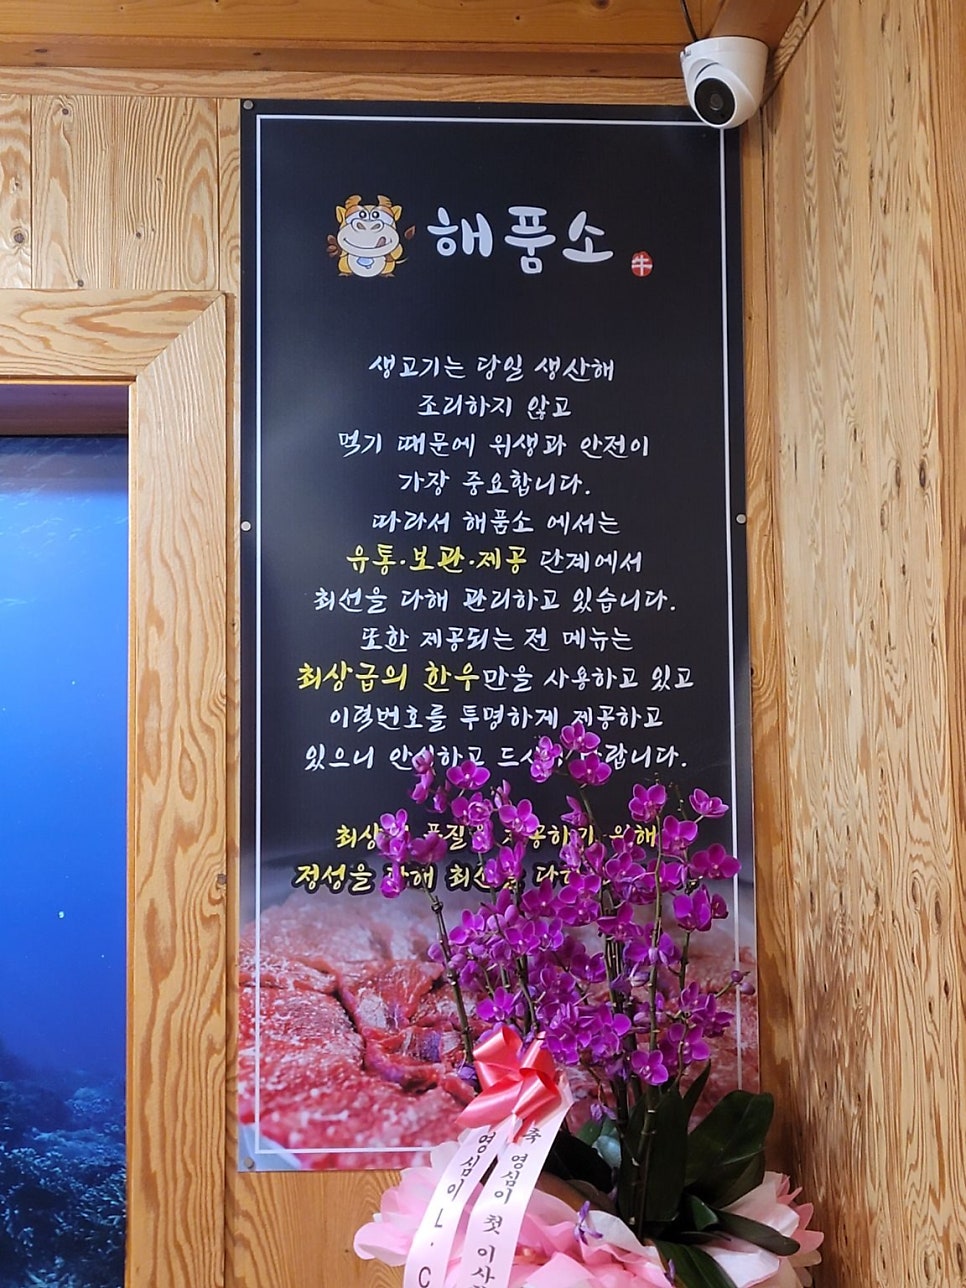 해품소
牛
생고기는 당일 생산해
조리하지 않고
먹기 때문에 위생과 안전이
가장 중요합니다.
따라서 해품소 에서는
유통·보관·제공 단계에서
최선을 다해 관리하고 있습니다.
또한 제공되는 전 메뉴는
최상급의 한우만을 사용하고 있고
이력번호를 투명하게 제공하고
있으니 안심하고
품질 위해
정성을 다해
영심이 L.C
축 영심이 첫 이사